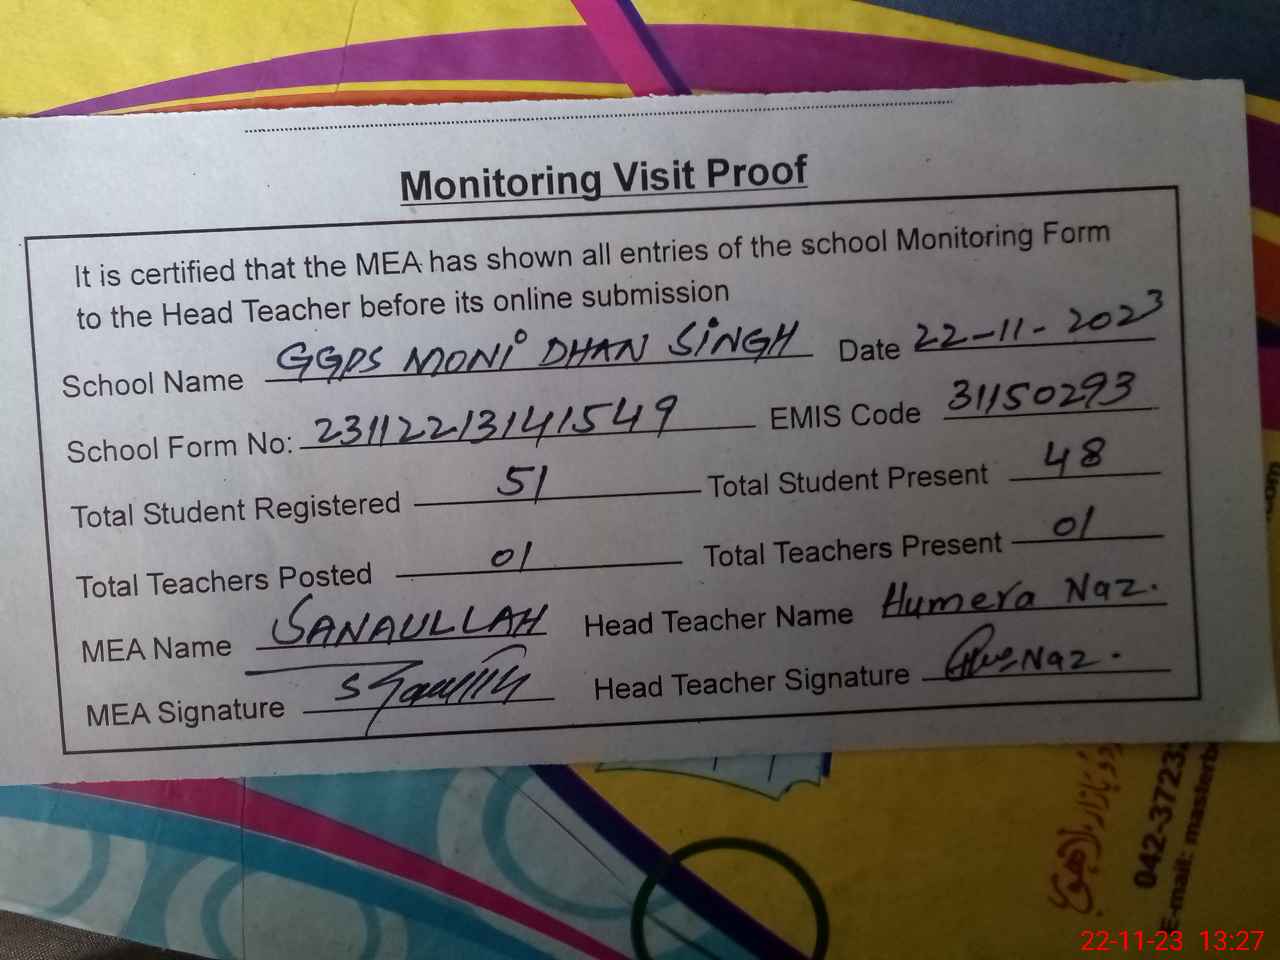 Monitoring Visit Proof
It is certified that the MEA has shown all entries of the school Monitoring Form
to the Head Teacher before its online submission
School Name GGPS MONI DHAN SINGH Date 22-11-2023
School Form No: 23112213141549 EMIS Code 31150293
Total Student Registered 51 Total Student Present 48
Total Teachers Posted 01 Total Teachers Present 01
MEA Name SANAULLAH Head Teacher Name Humera Naz.
MEA Signature Head Teacher Signature Naz.
.com
042-3723
E-mail: masterb
22-11-23 13:27